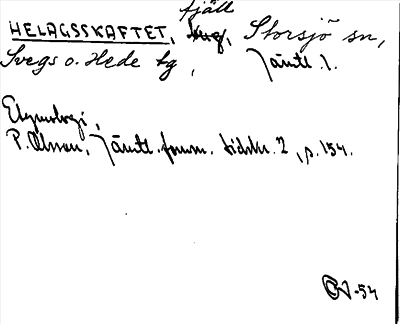 fjäll
HELAGSSKAFTET, Storsjö sn,
Svegs o. Hede tg, Jämtl. l.
Etymologi,
P. Olsson, Jämtl. fornm. tidskr. 2, p. 154.
-54